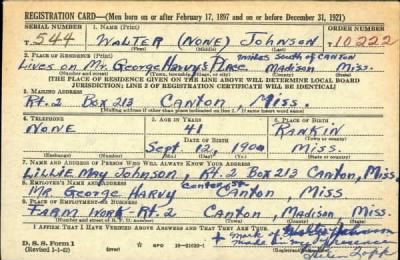 REGISTRATION CARD—(Men born on or after February 17, 1897 and on or before December 31, 1921)
SERIAL NUMBER 1. NAME (Print) ORDER NUMBER
T 544 WALTER (NONE) JOHNSON T 10222
(First) (Middle) (Last)
2. PLACE OF RESIDENCE (Print) miles South of CANTON
Lives on Mr. George Harvy's Place Madison Miss.
(Number and street) (Town, township, village, or city) (County) (State)
[THE PLACE OF RESIDENCE GIVEN ON THE LINE ABOVE WILL DETERMINE LOCAL BOARD
JURISDICTION; LINE 2 OF REGISTRATION CERTIFICATE WILL BE IDENTICAL]
3. MAILING ADDRESS
Rt. 2 Box 213 Canton, Miss.
[Mailing address if other than place indicated on line 2. If same insert word same]
4. TELEPHONE 5. AGE IN YEARS 6. PLACE OF BIRTH
NONE 41 RANKIN
DATE OF BIRTH (Town or county)
Sept. 12, 1900 Miss.
(Exchange) (Number) (Mo.) (Day) (Yr.) (State or country)
7. NAME AND ADDRESS OF PERSON WHO WILL ALWAYS KNOW YOUR ADDRESS
LILLIE MAY JOHNSON, Rt. 2 Box 213 Canton, Miss.
8. EMPLOYER'S NAME AND ADDRESS
Mr. George Harvy Center St. Canton, Miss
9. PLACE OF EMPLOYMENT OR BUSINESS
FARM WORK—Rt. 2 Canton, Madison, Miss.
(Number and street or R. F. D. number) (Town) (County) (State)
I AFFIRM THAT I HAVE VERIFIED ABOVE ANSWERS AND THAT THEY ARE TRUE.
+ mark of Walter Johnson
made in my presence
D. S. S. Form 1
(Revised 1-1-42) (over) GPO 16—21630-1
Helen